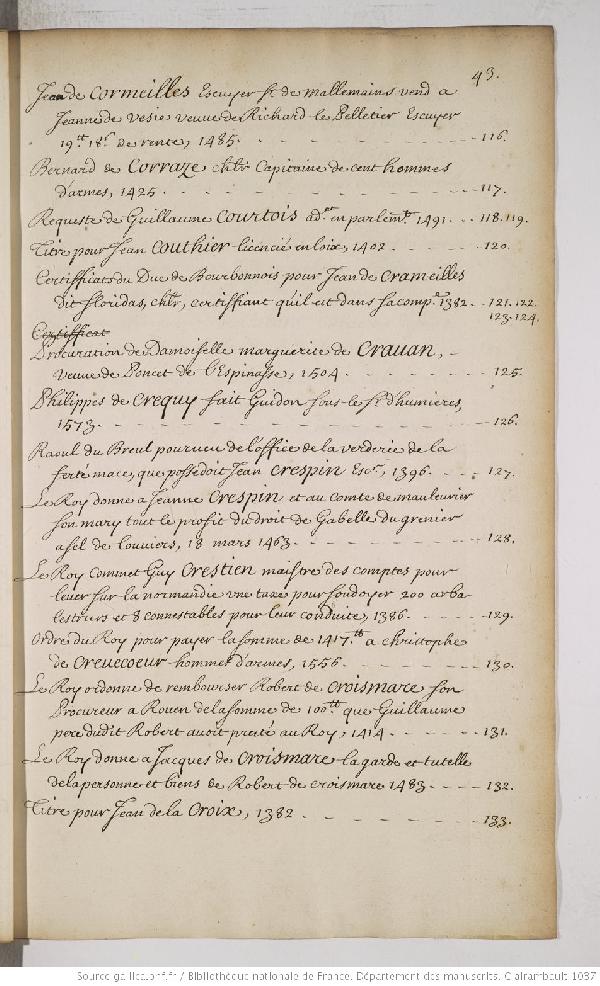 43.
Jean de Cormeilles Escuyer Sr. de mallemains vend a
Jeanne de Vesies veuve de Richard le Pelletier Escuyer
19tt 18s. de rente, 1485. - - - - - - - - - 116.
Bernard de Corraze chlr Capitaine de cent hommes
d'armes, 1425 - - - - - - - - - 117.
Requeste de Guillaume Courtois adt. en parlemt. 1491. - - 118.119.
Titre pour Jean Couthier licencié en loix, 1402 - - - - - 120.
Certifficats du Duc de Bourbonnois pour Jean de Crameilles
dit floridas, chlr, certiffiant qu'il est dans sa compe. 1382. - 121.122.
123.124.
Certifficat
Procuration de Damoiselle marguerite de Crauan, -
veuve de Poncet de l'Espinasse, 1504 - - - - - - 125.
Philippes de Crequy fait Guidon sous le Sr. d'humieres,
1573. - - - - - - - - - 126.
Raoul du Breul pourueu de l'office de la verderie de la
ferté mace, que possedoit Jean Crespin Escr., 1396. - - - 127.
Le Roy donne a Jeanne Crespin et au Comte de mauleurier
son mary tout le profit du droit de Gabelle du grenier
a sel de louviers, 18 mars 1463. - - - - - - - 128.
Le Roy Commet Guy Crestien maistre des comptes pour
lever sur la normandie vne taxe pour soudoyer 200 arba-
lestriers et 8 connestables pour leur conduite, 1386. - - - 129.
Ordre du Roy pour payer la somme de 1417tt a christophe
de Creuecoeur homme d'armes, 1556 - - - - - - 130.
Le Roy ordonne de rembourser Robert de Croismare son
Procureur a Rouen de la somme de 100tt que Guillaume
pere dudit Robert avoit presté au Roy, 1414 - - - - 131.
Le Roy donne a Jacques de Croismare la garde et tutelle
de la personne et biens de Robert de croismare 1483 - - - - 132.
Titre pour Jean de la Croix, 1382 - - - - - - - 133.
Source gallica.bnf.fr / Bibliothèque nationale de France. Département des manuscrits. Clairambault 1037